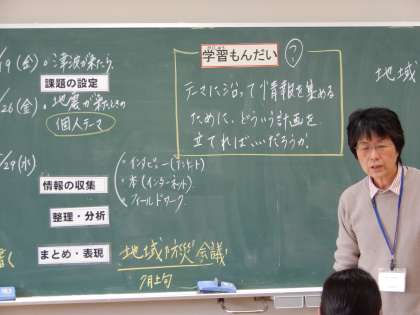 /19(金)・津波が来たら
課題の設定
/26(金)・地震が来たときの
個人テーマ
/29(水)
・インタビュー(アンケート)
情報の収集
・本(インターネット)
・フィールドワーク
整理・分析
まとめ・表現
地域防災会議
7月上旬
学習もんだい
?
テーマに沿って情報を集める
ために、どういう計画を
立てればいいだろうか。
地域